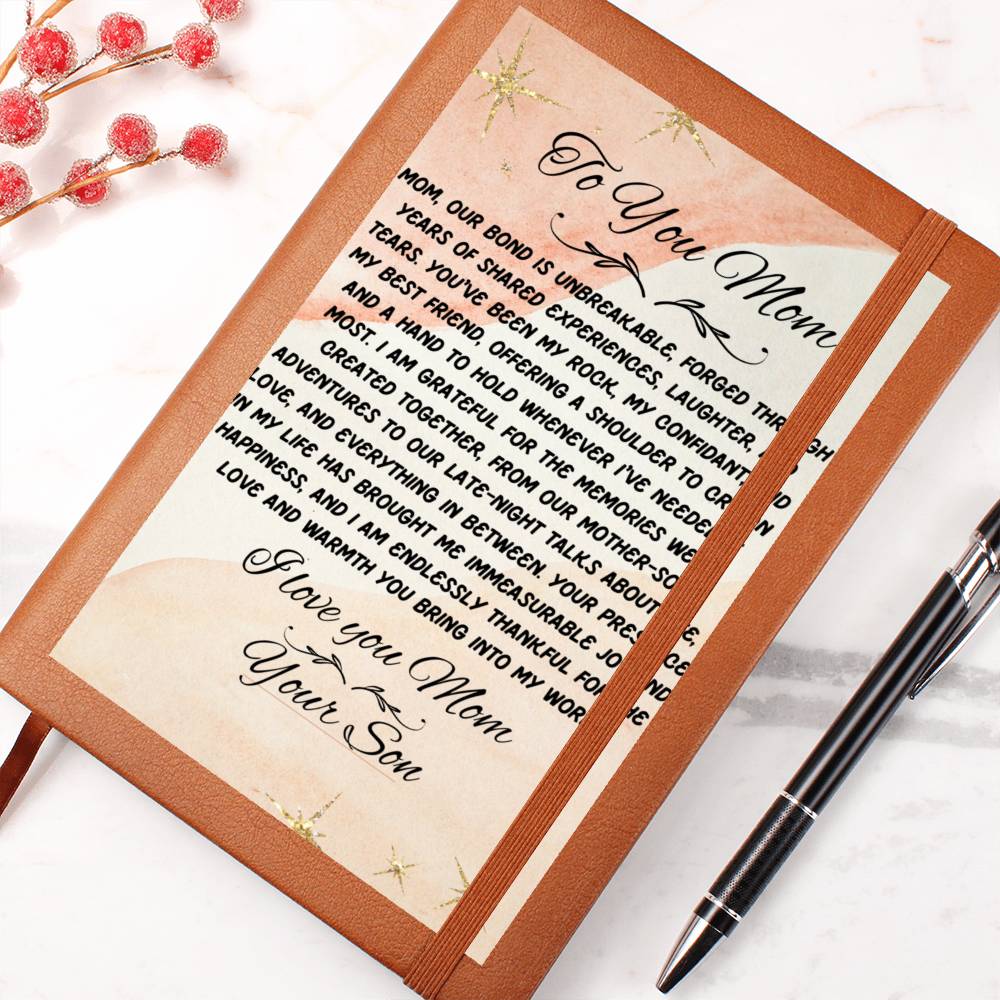 To You Mom
MOM, OUR BOND IS UNBREAKABLE, FORGED THROUGH
YEARS OF SHARED EXPERIENCES, LAUGHTER, AND
TEARS. YOU'VE BEEN MY ROCK, MY CONFIDANT, AND
MY BEST FRIEND, OFFERING A SHOULDER TO CRY ON
AND A HAND TO HOLD WHENEVER I'VE NEEDED
MOST. I AM GRATEFUL FOR THE MEMORIES WE
CREATED TOGETHER, FROM OUR MOTHER-SON
ADVENTURES TO OUR LATE-NIGHT TALKS ABOUT
LOVE, AND EVERYTHING IN BETWEEN. YOUR PRESENCE
IN MY LIFE HAS BROUGHT ME IMMEASURABLE JOY AND
HAPPINESS, AND I AM ENDLESSLY THANKFUL FOR THE
LOVE AND WARMTH YOU BRING INTO MY
I love you Mom
Your Son